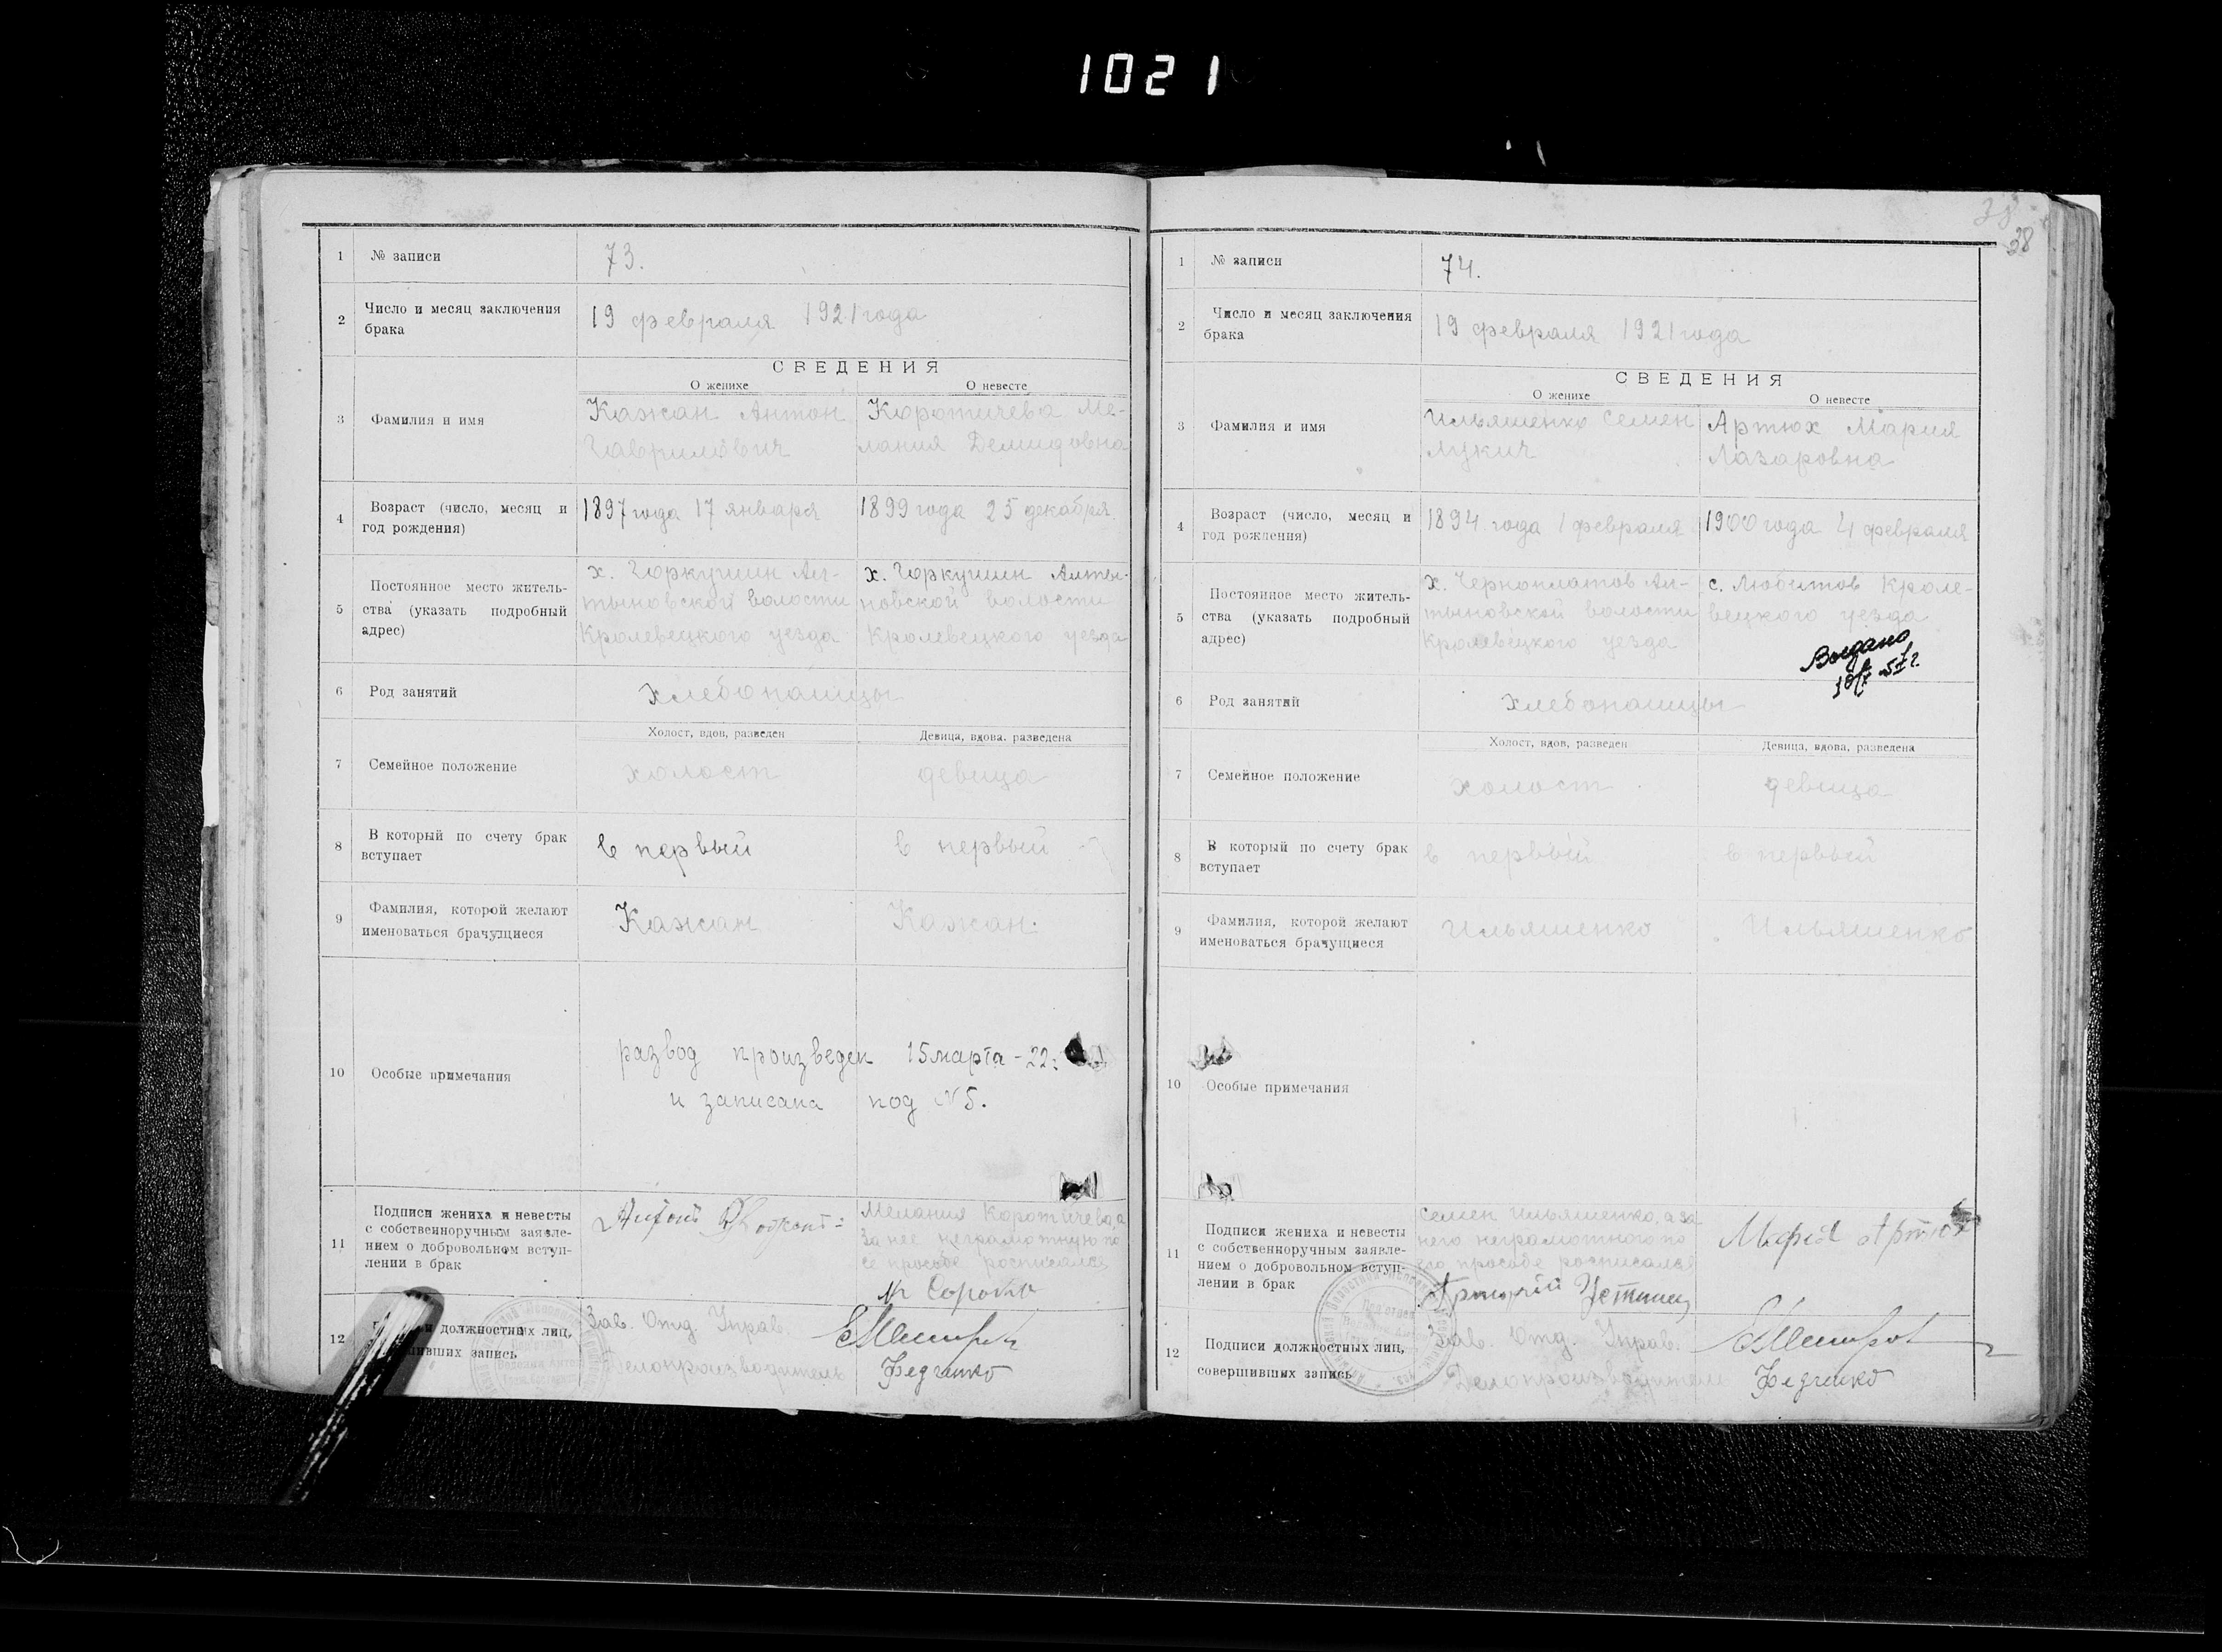 1021
1 № записи 73.
2 Число и месяц заключения
брака
19 февраля 1921 года
СВЕДЕНИЯ
О женихе О невесте
3 Фамилия и имя
Кажан Антон Коротичева Ме-
Гаврилович лания Демидовна
4 Возраст (число, месяц и
год рождения)
1897 года 17 января 1899 года 25 декабря.
5 Постоянное место житель-
ства (указать подробный
адрес)
х. Горкушин Ал- х. Горкушин Алты-
тыновской волости новской волости
Кролевецкого уезда Кролевецкого уезда
6 Род занятий хлебопашцы
Холост, вдов, разведен Девица, вдова. разведена
7 Семейное положение холост девица
8 В который по счету брак
вступает
в первый в первый
9 Фамилия, которой желают
именоваться брачущиеся
Кажан Кажан.
10 Особые примечания
развод произведен 15 марта - 22:
и записана под №5.
11 Подписи жениха и невесты
с собственноручным заявле-
нием о добровольном вступ-
лении в брак
Мелания Коротичева, а
за нее неграмотную по
ее просьбе расписался
12 должностных лиц,
запись
Зав. Отд. Управ.
Делопроизводитель Федченко
38
38
1 № записи 74.
2 Число и месяц заключения
брака
19 февраля 1921 года
СВЕДЕНИЯ
О женихе О невесте
3 Фамилия и имя
Ильяшенко Семен Артюх Мария
Лукич Лазаровна
4 Возраст (число, месяц и
год рождения)
1894 года 1 февраля 1900 года 4 февраля
5 Постоянное место житель-
ства (указать подробный
адрес)
х. Черноплатов Ал- с. Любитов Кроле-
тыновской волости вецкого уезда
Кролевецкого уезда
Выдано
6 Род занятий хлебопашцы
Холост, вдов, разведен Девица, вдова, разведена
7 Семейное положение холост девица
8 В который по счету брак
вступает
в первый в первый
9 Фамилия, которой желают
именоваться брачущиеся
Ильяшенко Ильяшенко
10 Особые примечания
11 Подписи жениха и невесты
с собственноручным заявле-
нием о добровольном вступ-
лении в брак
Семен Ильяшенко, а за
него неграмотного по
его просьбе расписался
Марія Артюх
12 Подписи должностных лиц,
совершивших запись
Зав. Отд. Управ.
Делопроизводитель Федченко